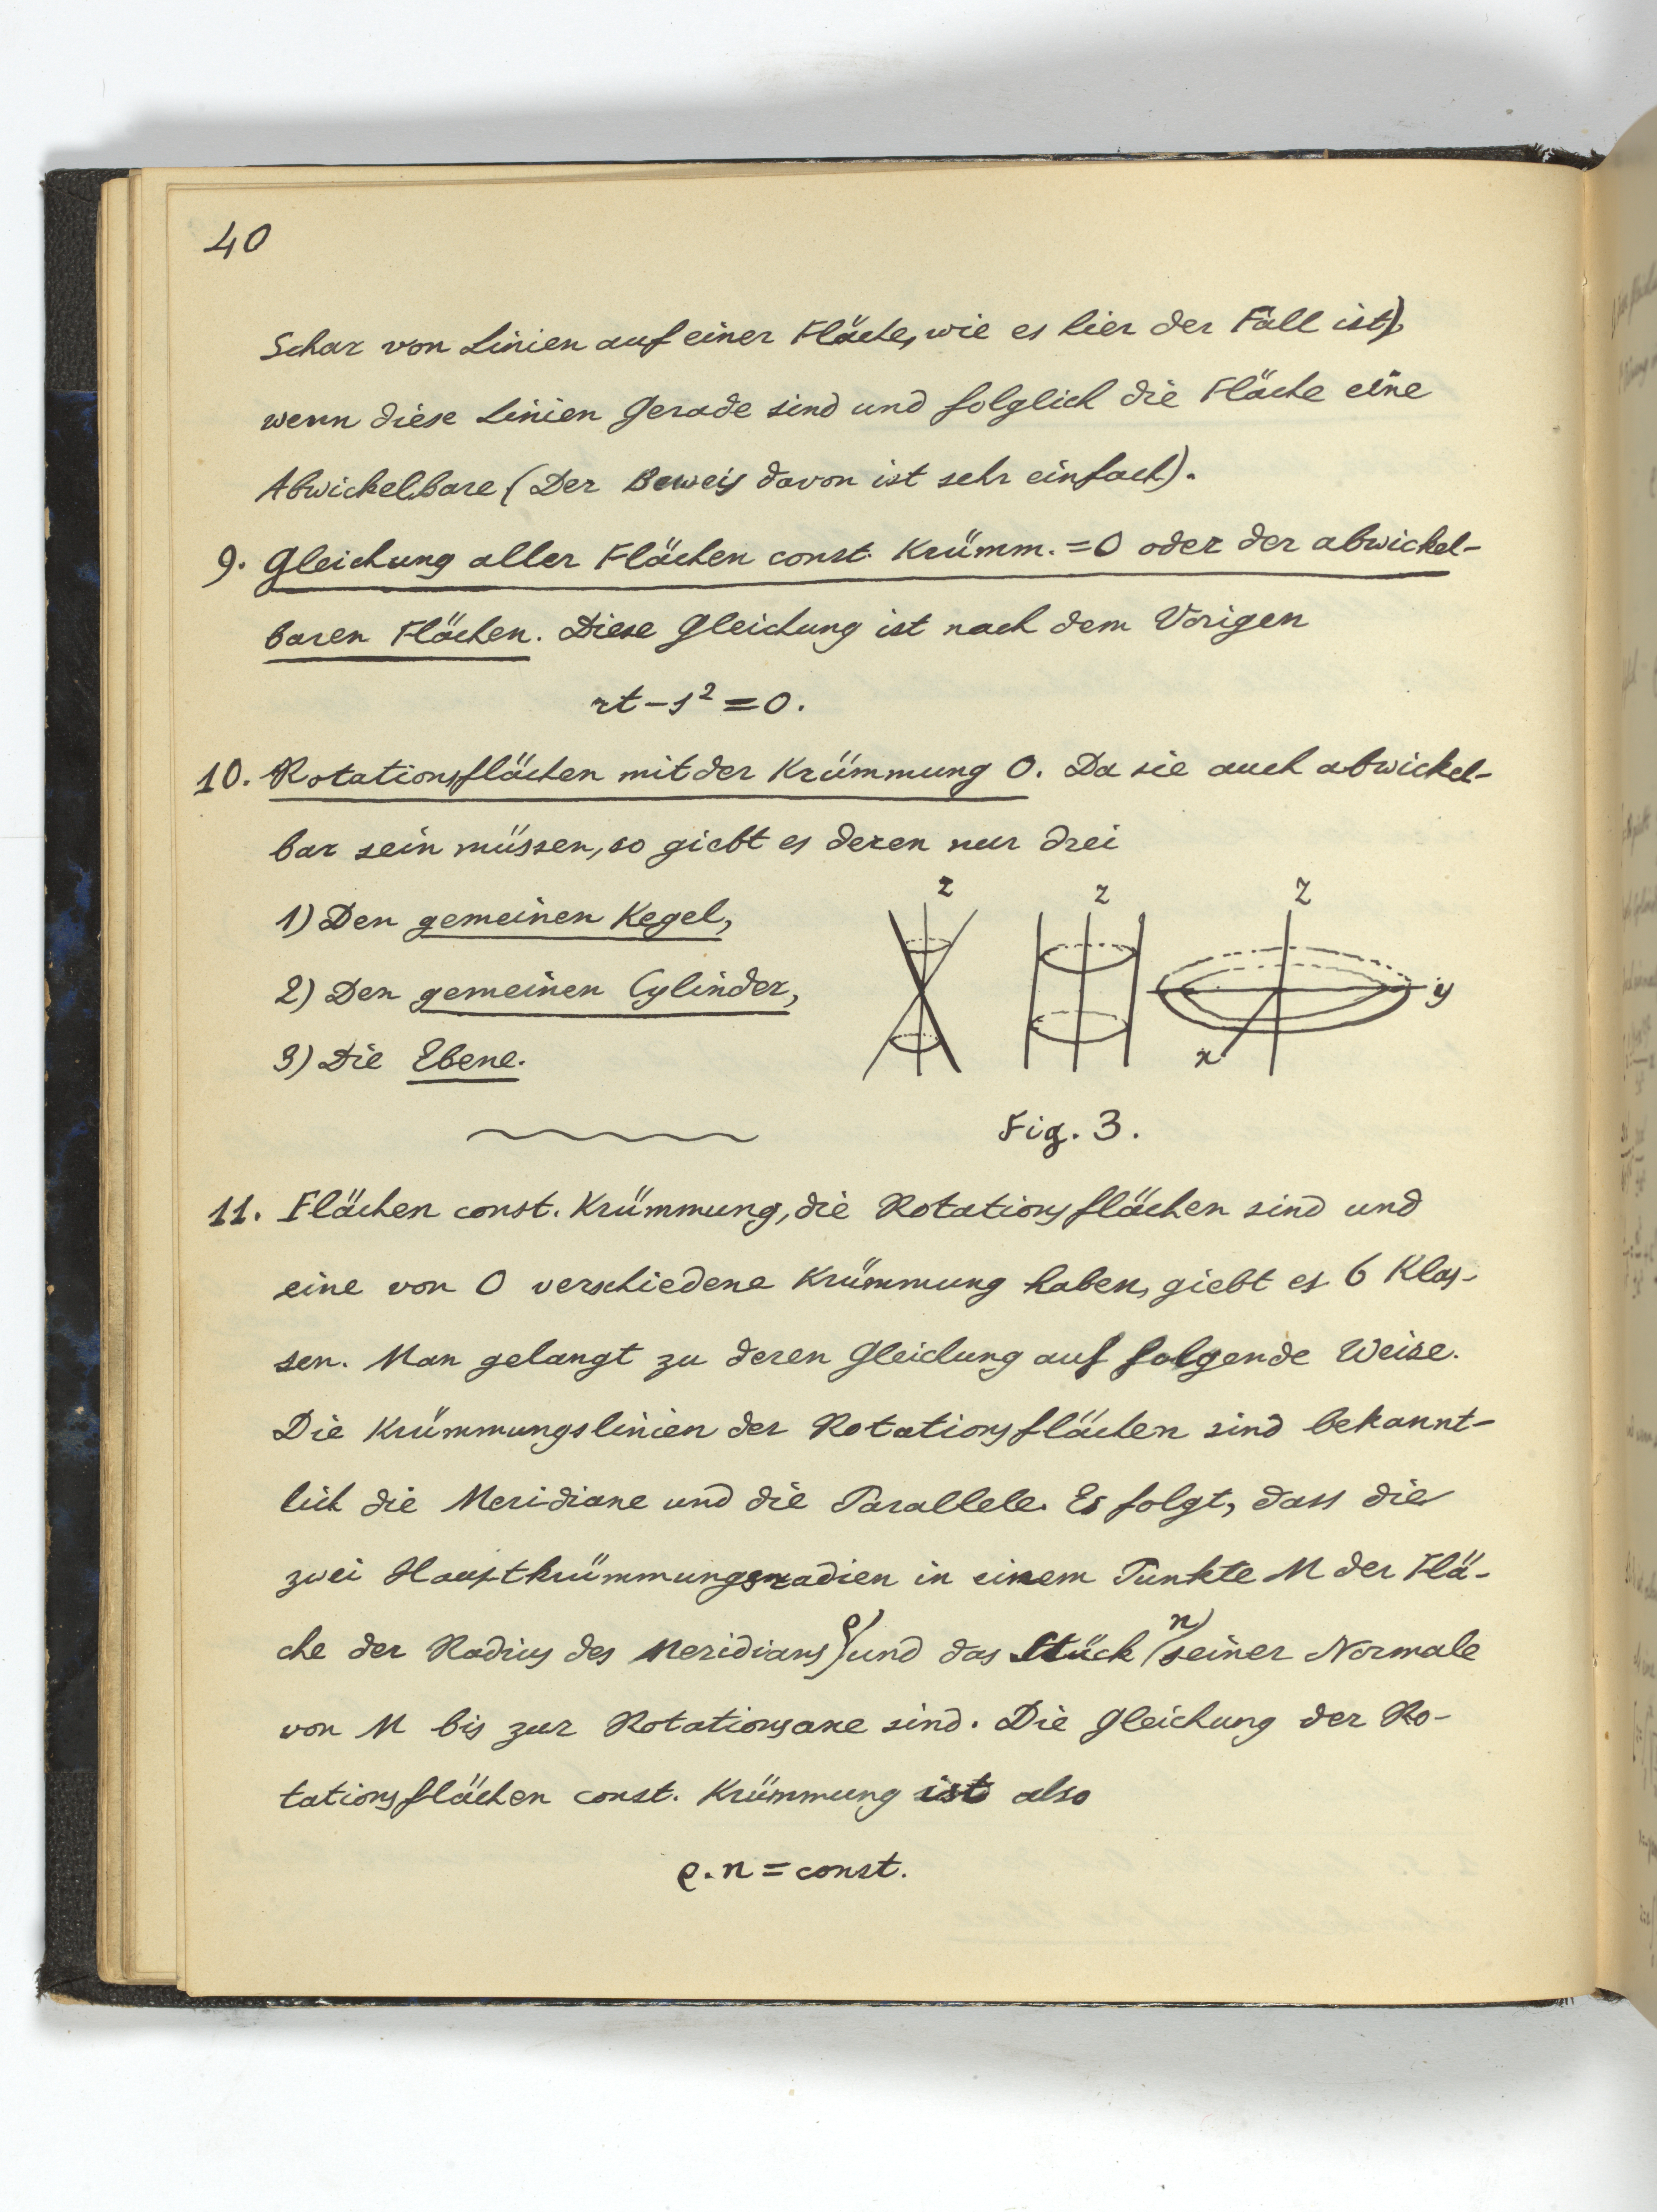 40
Schar von Linien auf einer Fläche, wie es hier der Fall ist),
wenn diese Linien Gerade sind und folglich die Fläche eine
Abwickelbare (Der Beweis davon ist sehr einfach).
9. Gleichung aller Flächen const. Krümm. = 0 oder der abwickel-
baren Flächen. Diese Gleichung ist nach dem Vorigen
rt - s² = 0.
10. Rotationsflächen mit der Krümmung 0. Da sie auch abwickel-
bar sein müssen, so giebt es deren nur drei
1) Den gemeinen Kegel,
2) Den gemeinen Cylinder,
3) Die Ebene.
z z z
y
x
Fig. 3.
11. Flächen const. Krümmung, die Rotationsflächen sind und
eine von 0 verschiedene Krümmung haben, giebt es 6 Klas-
sen. Man gelangt zu deren Gleichung auf folgende Weise.
Die Krümmungslinien der Rotationsflächen sind bekannt-
lich die Meridiane und die Parallele. Es folgt, dass die
zwei Hauptkrümmungsradien in einem Punkte M der Flä-
che der Radius des Meridians (ρ) und das Stück (n) seiner Normale
von M bis zur Rotationsaxe sind. Die Gleichung der Ro-
tationsflächen const. Krümmung ist also
ρ. n = const.